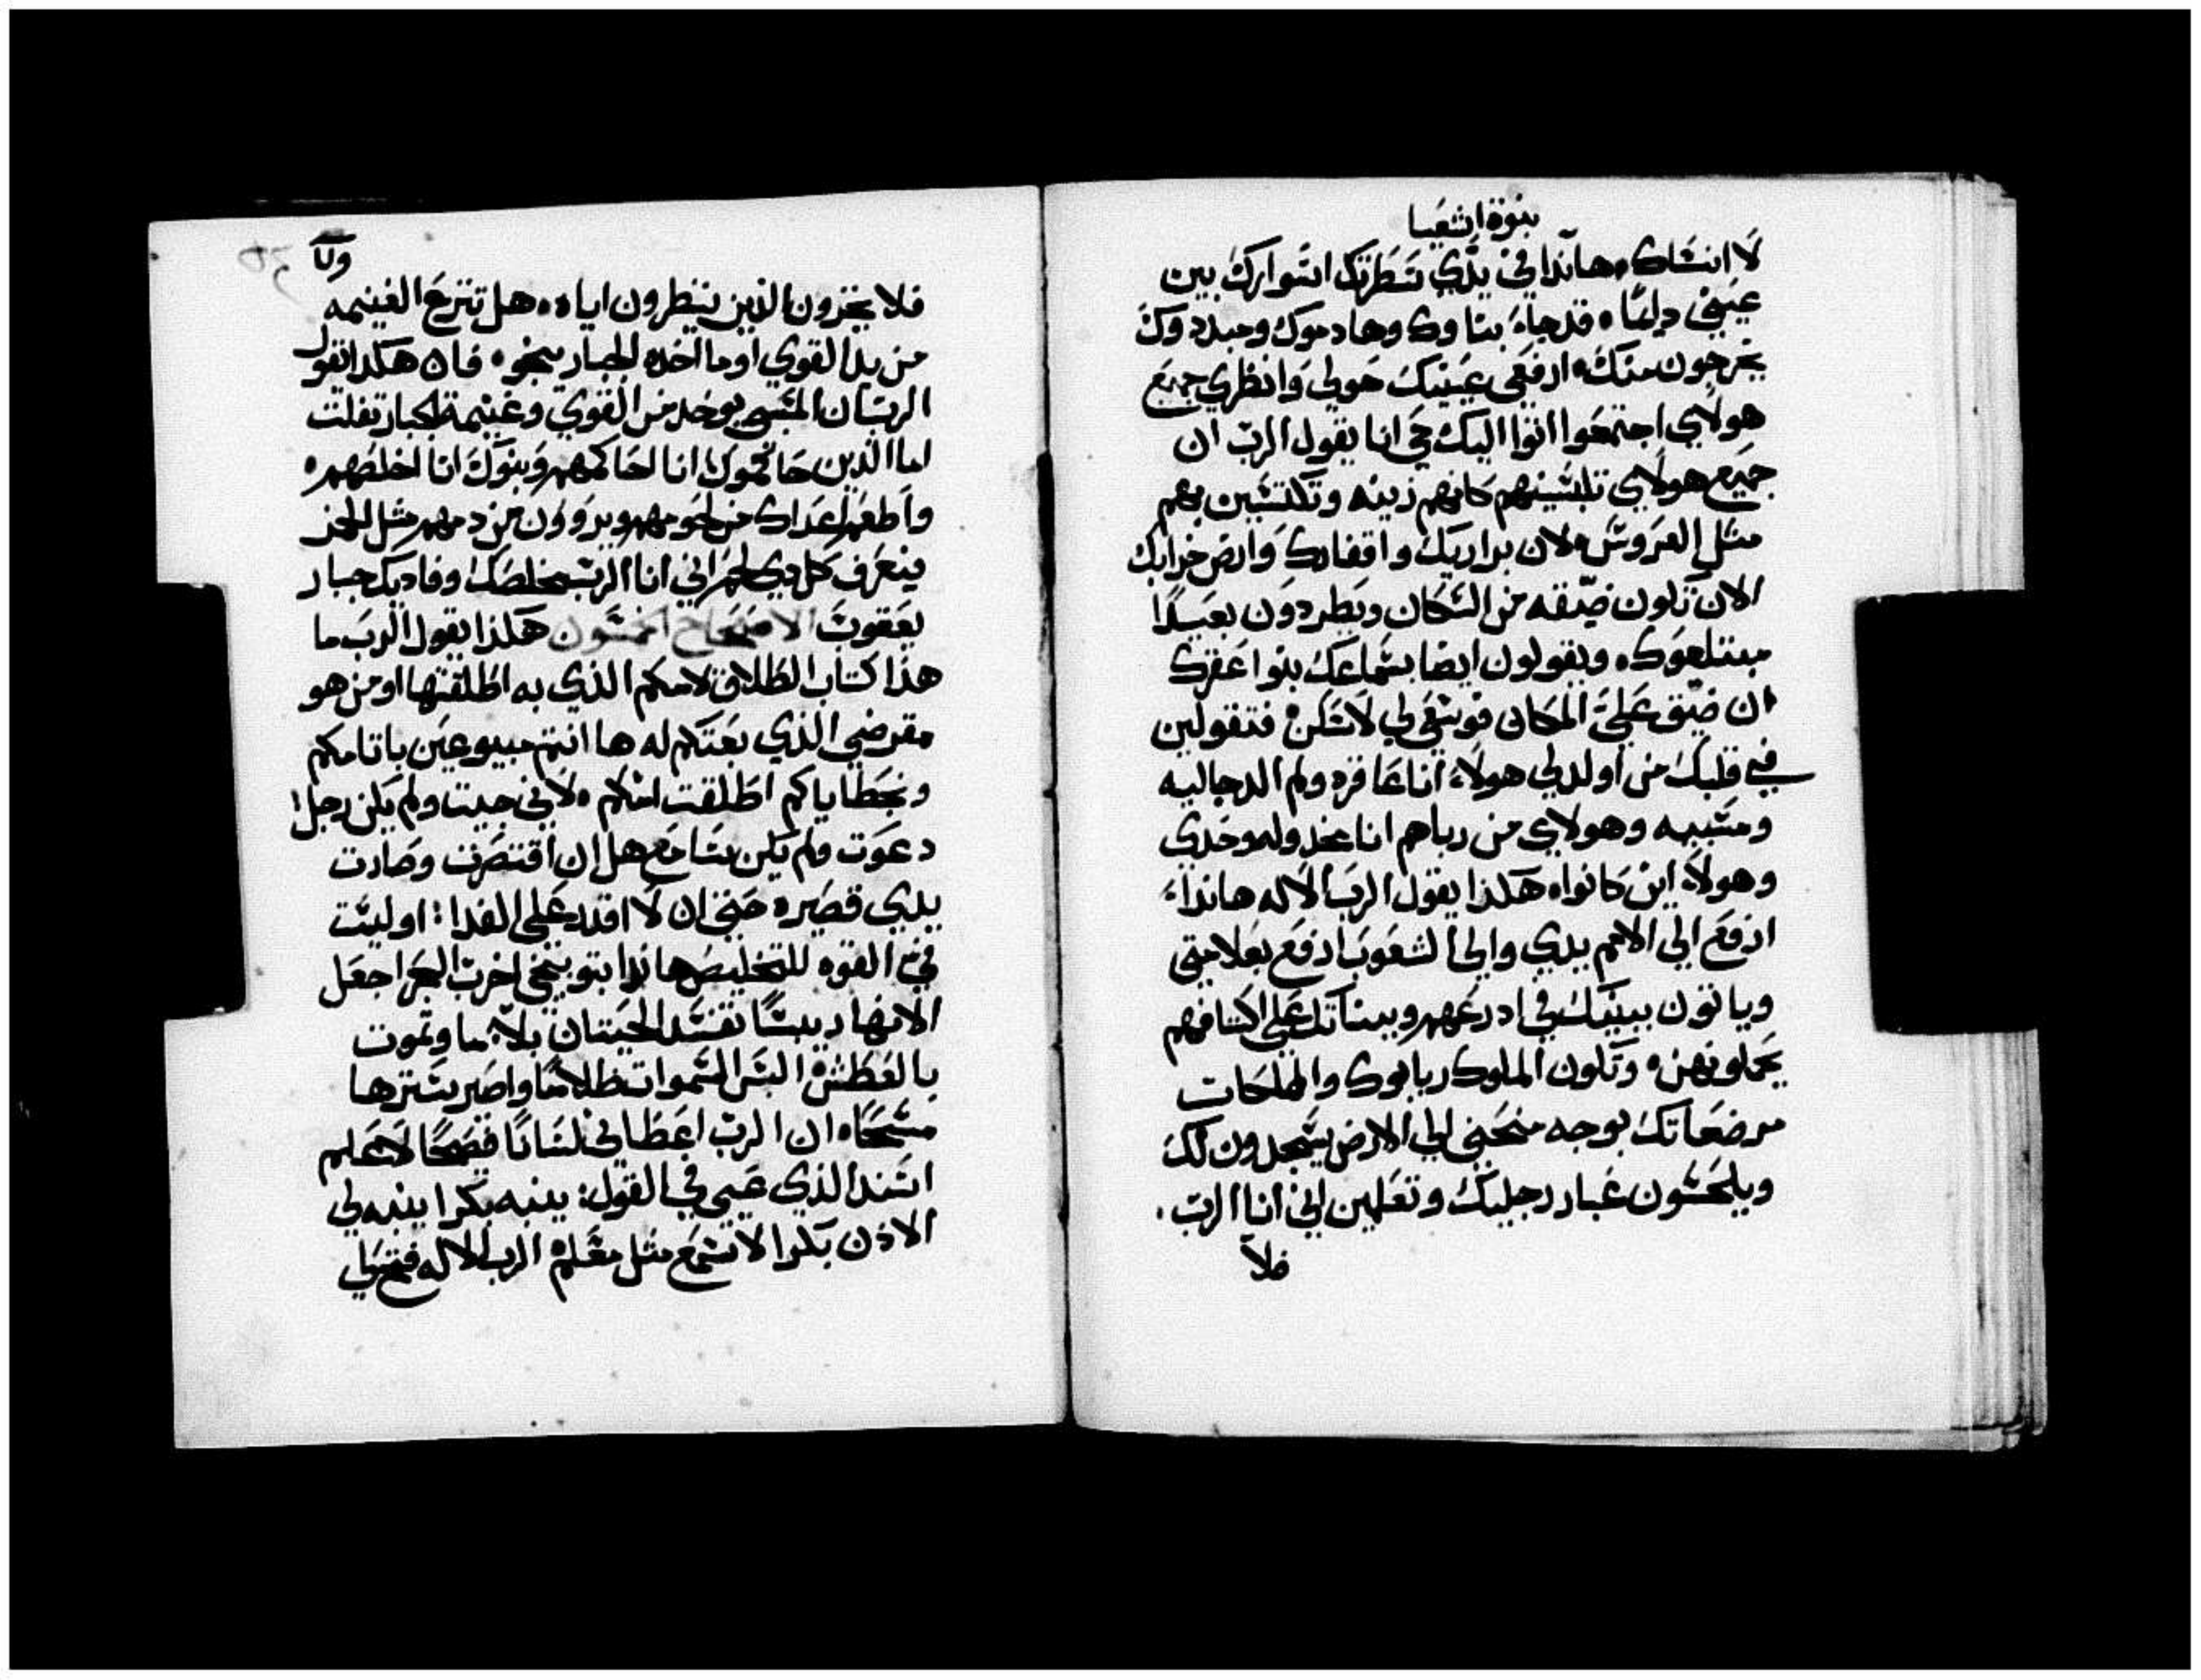 بنوة اشعيا
لا انساك ها نذا في يدي سطرتك اسوارك بين
عيني دايما قد جاء بناوك وهادموك ومبددوك
يخرجون منك ارفعي عينيك حولي وانظري جميع
هولاي اجتمعوا اتوا اليك حي انا يقول الرب ان
جميع هولاي تلبسينهم كانهم زينه وتكتسين بهم
مثل العروس لان براريك واقفارك وارض خرابك
الان تكون ضيقه من السكان ويطردون بعيدا
مبتلعوك ويقولون ايضا بسماعك بنوا عقرك
ان ضيق علي المكان فوسعي لي لاسكن فتقولين
في قلبك من اولد لي هولاء انا عاقره ولم الد جاليه
ومسبيه وهولاي من رباهم انا مخدوله وحدي
وهولاء اين كانوا هكذا يقول الرب الاله هانذا
ارفع الي الامم يدي والي الشعوب ارفع بعلامتي
وياتون ببنيك في ادرعهم وبيناتك علي اكتافهم
يحملونهن وتكون الملوك ربابوك والملكات
مرضعاتك بوجه منحني الي الارض يسجدون لك
ويلحسون غبار رجليك وتعلمين اني انا الرب
فلا
فلا يخزون الذين ينتظرون اياه هل تنزع الغنيمه
من يد القوي او ما اخده الجبار ينجو فان هكدا تقول
الرب ان السبي يوخد من القوي وغنيمة الجبار تفلت
اما الذين حاكموك انا احاكمهم وبنوك انا اخلصهم
واطعم اعداك من لحومهم ويروون من دمهم مثل الخمر
فيعرف كل دي لحم اني انا الرب مخلصك وفاديك جبار
يعقوب الاصحاح الخمسون هكذا يقول الرب ما
هذا كتاب الطلاق لامكم الذي به اطلقتها او من هو
مقرضي الذي بعتكم له ها انتم مبيوعين باثامكم
وبخطاياكم اطلقت امكم لاني جيت ولم يكن رجل
دعوت ولم يكن سامع هل ان اقتصرت وصارت
يدي قصيره حتي ان لا اقدر علي الفدا اوليست
في القوه للتخليص هانذا بتوبيخي اخرب البحر اجعل
الانهار يبسا تفسد الحيتان بلا ما وتموت
بالعطش البس السموات ظلاما واصير سترها
مسحا ان الرب اعطاني لسانا فصيحا لاعلم
اسند الذي عيي في القول ينبه بكرا ينبه لي
الادن بكرا لاسمع مثل معلم الرب الاله فتح لي